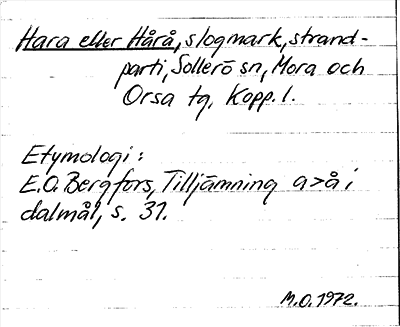 Hara eller Hårå, slogmark, strand-
parti, Sollerö sn, Mora och
Orsa tg, Kopp. l.
Etymologi:
E.O. Bergfors, Tilljämning a>å i
dalmål, s. 31.
M.O. 1972.